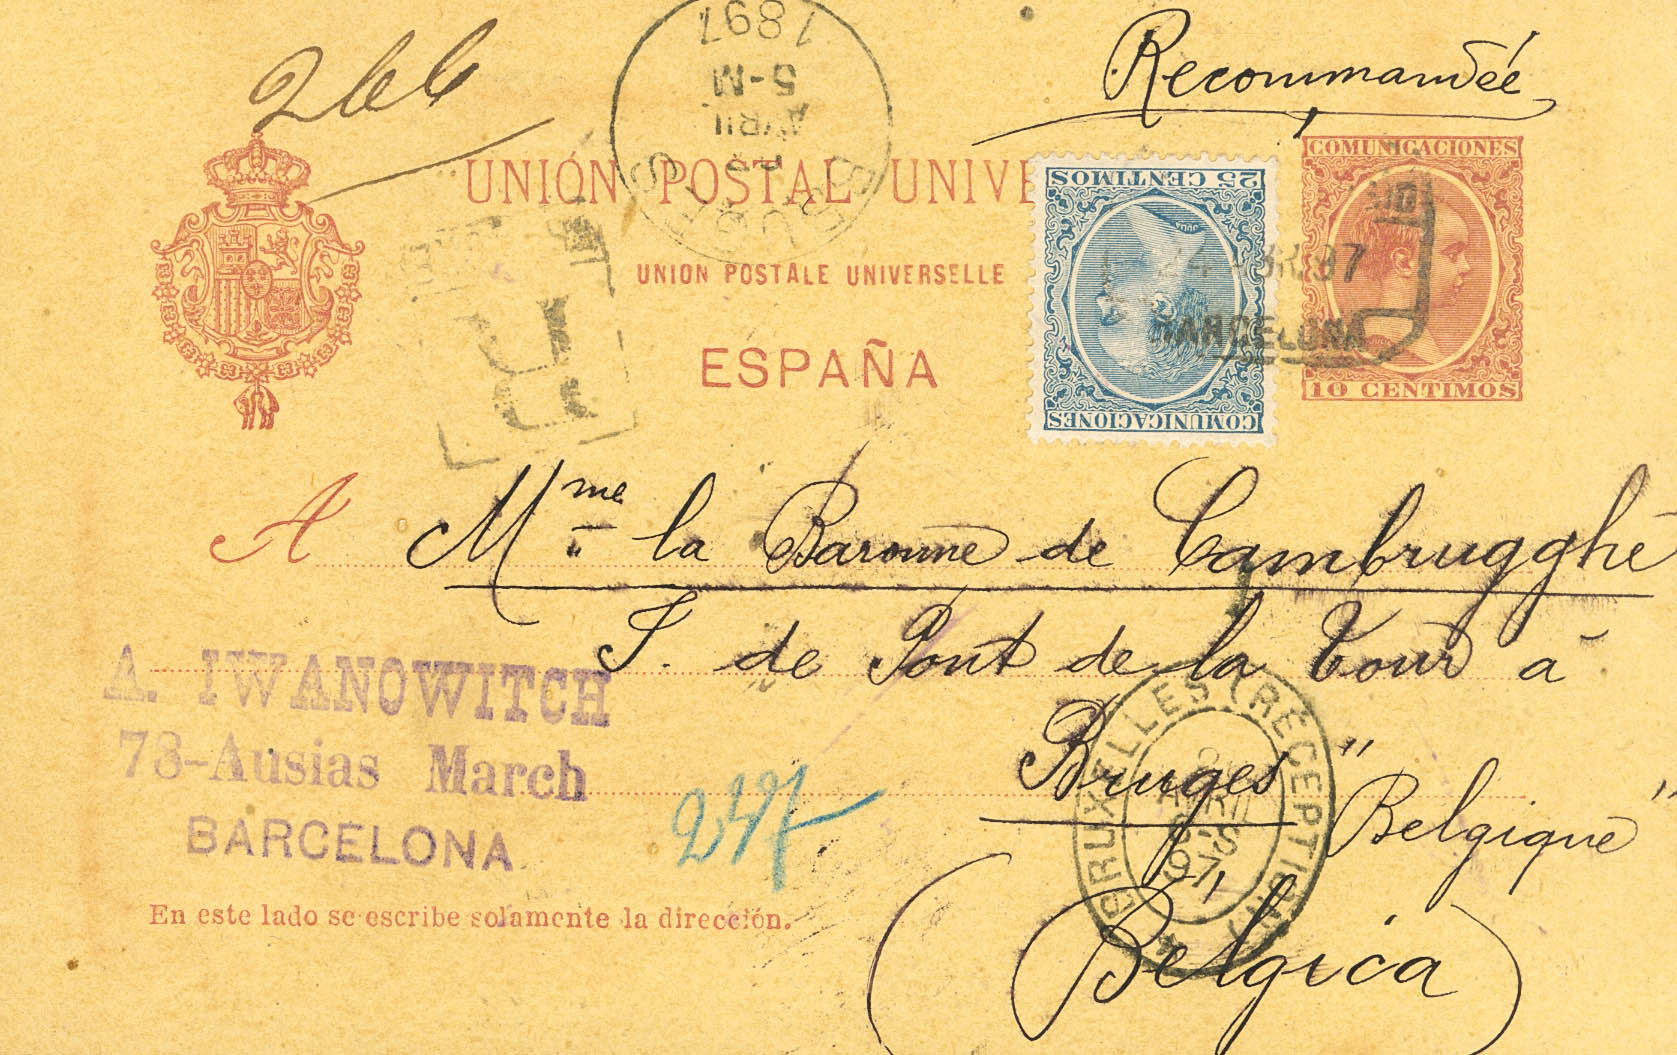 Recommandée
266
1897
5-M
AVRIL
BRUGES
UNIÓN POSTAL UNIVE
UNION POSTALE UNIVERSELLE
ESPAÑA
25 CENTIMOS
COMUNICACIONES
COMUNICACIONES
10 CENTIMOS
BARCELONA
A Mme la Baronne de Cambrugghe
S. de Pont de la Tour à
Bruges "Belgique"
(Belgica)
A. IWANOWITCH
73-Ausias March
BARCELONA
247
BRUXELLES (RÉCEPTION)
AVRIL
97
En este lado se escribe solamente la dirección.